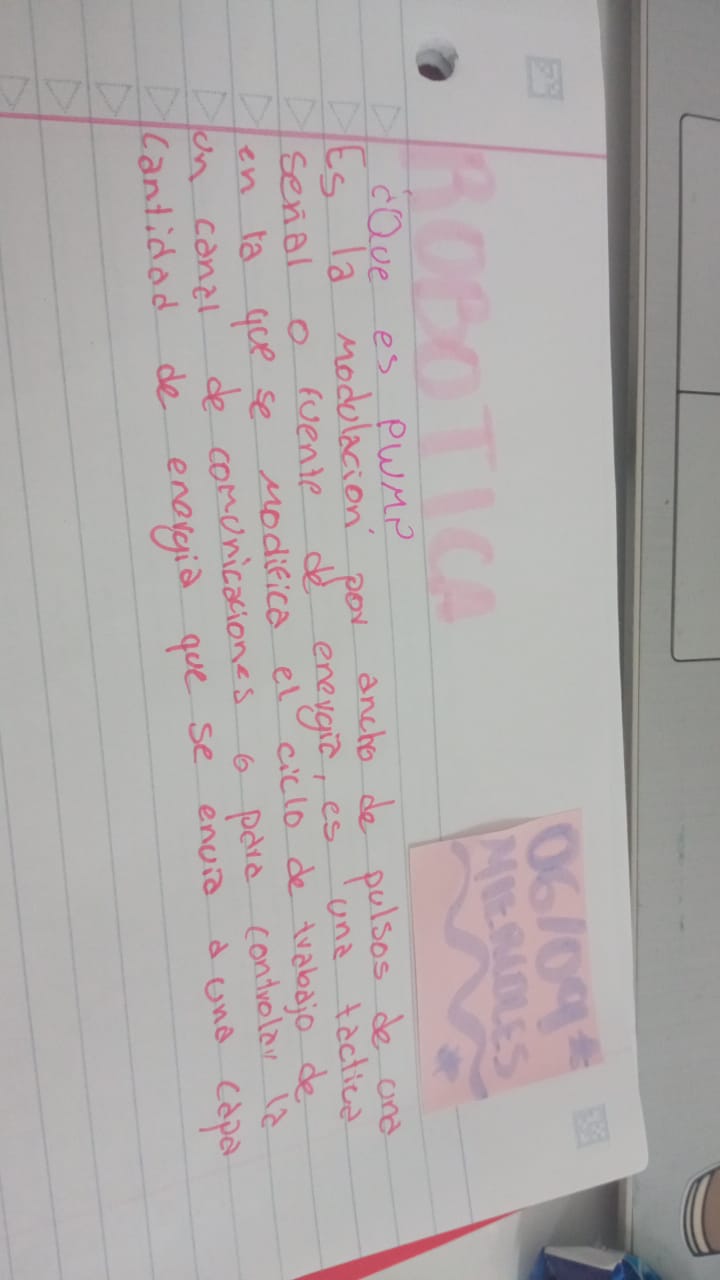 ROBOTICA
06/09
MIERCOLES
¿Que es PWM?
Es la modulación por ancho de pulsos de una
señal o fuente de energía, es una tactica
en la que se modifica el ciclo de trabajo de
un canal de comunicaciones o para controlar la
cantidad de energia que se envia a una capa